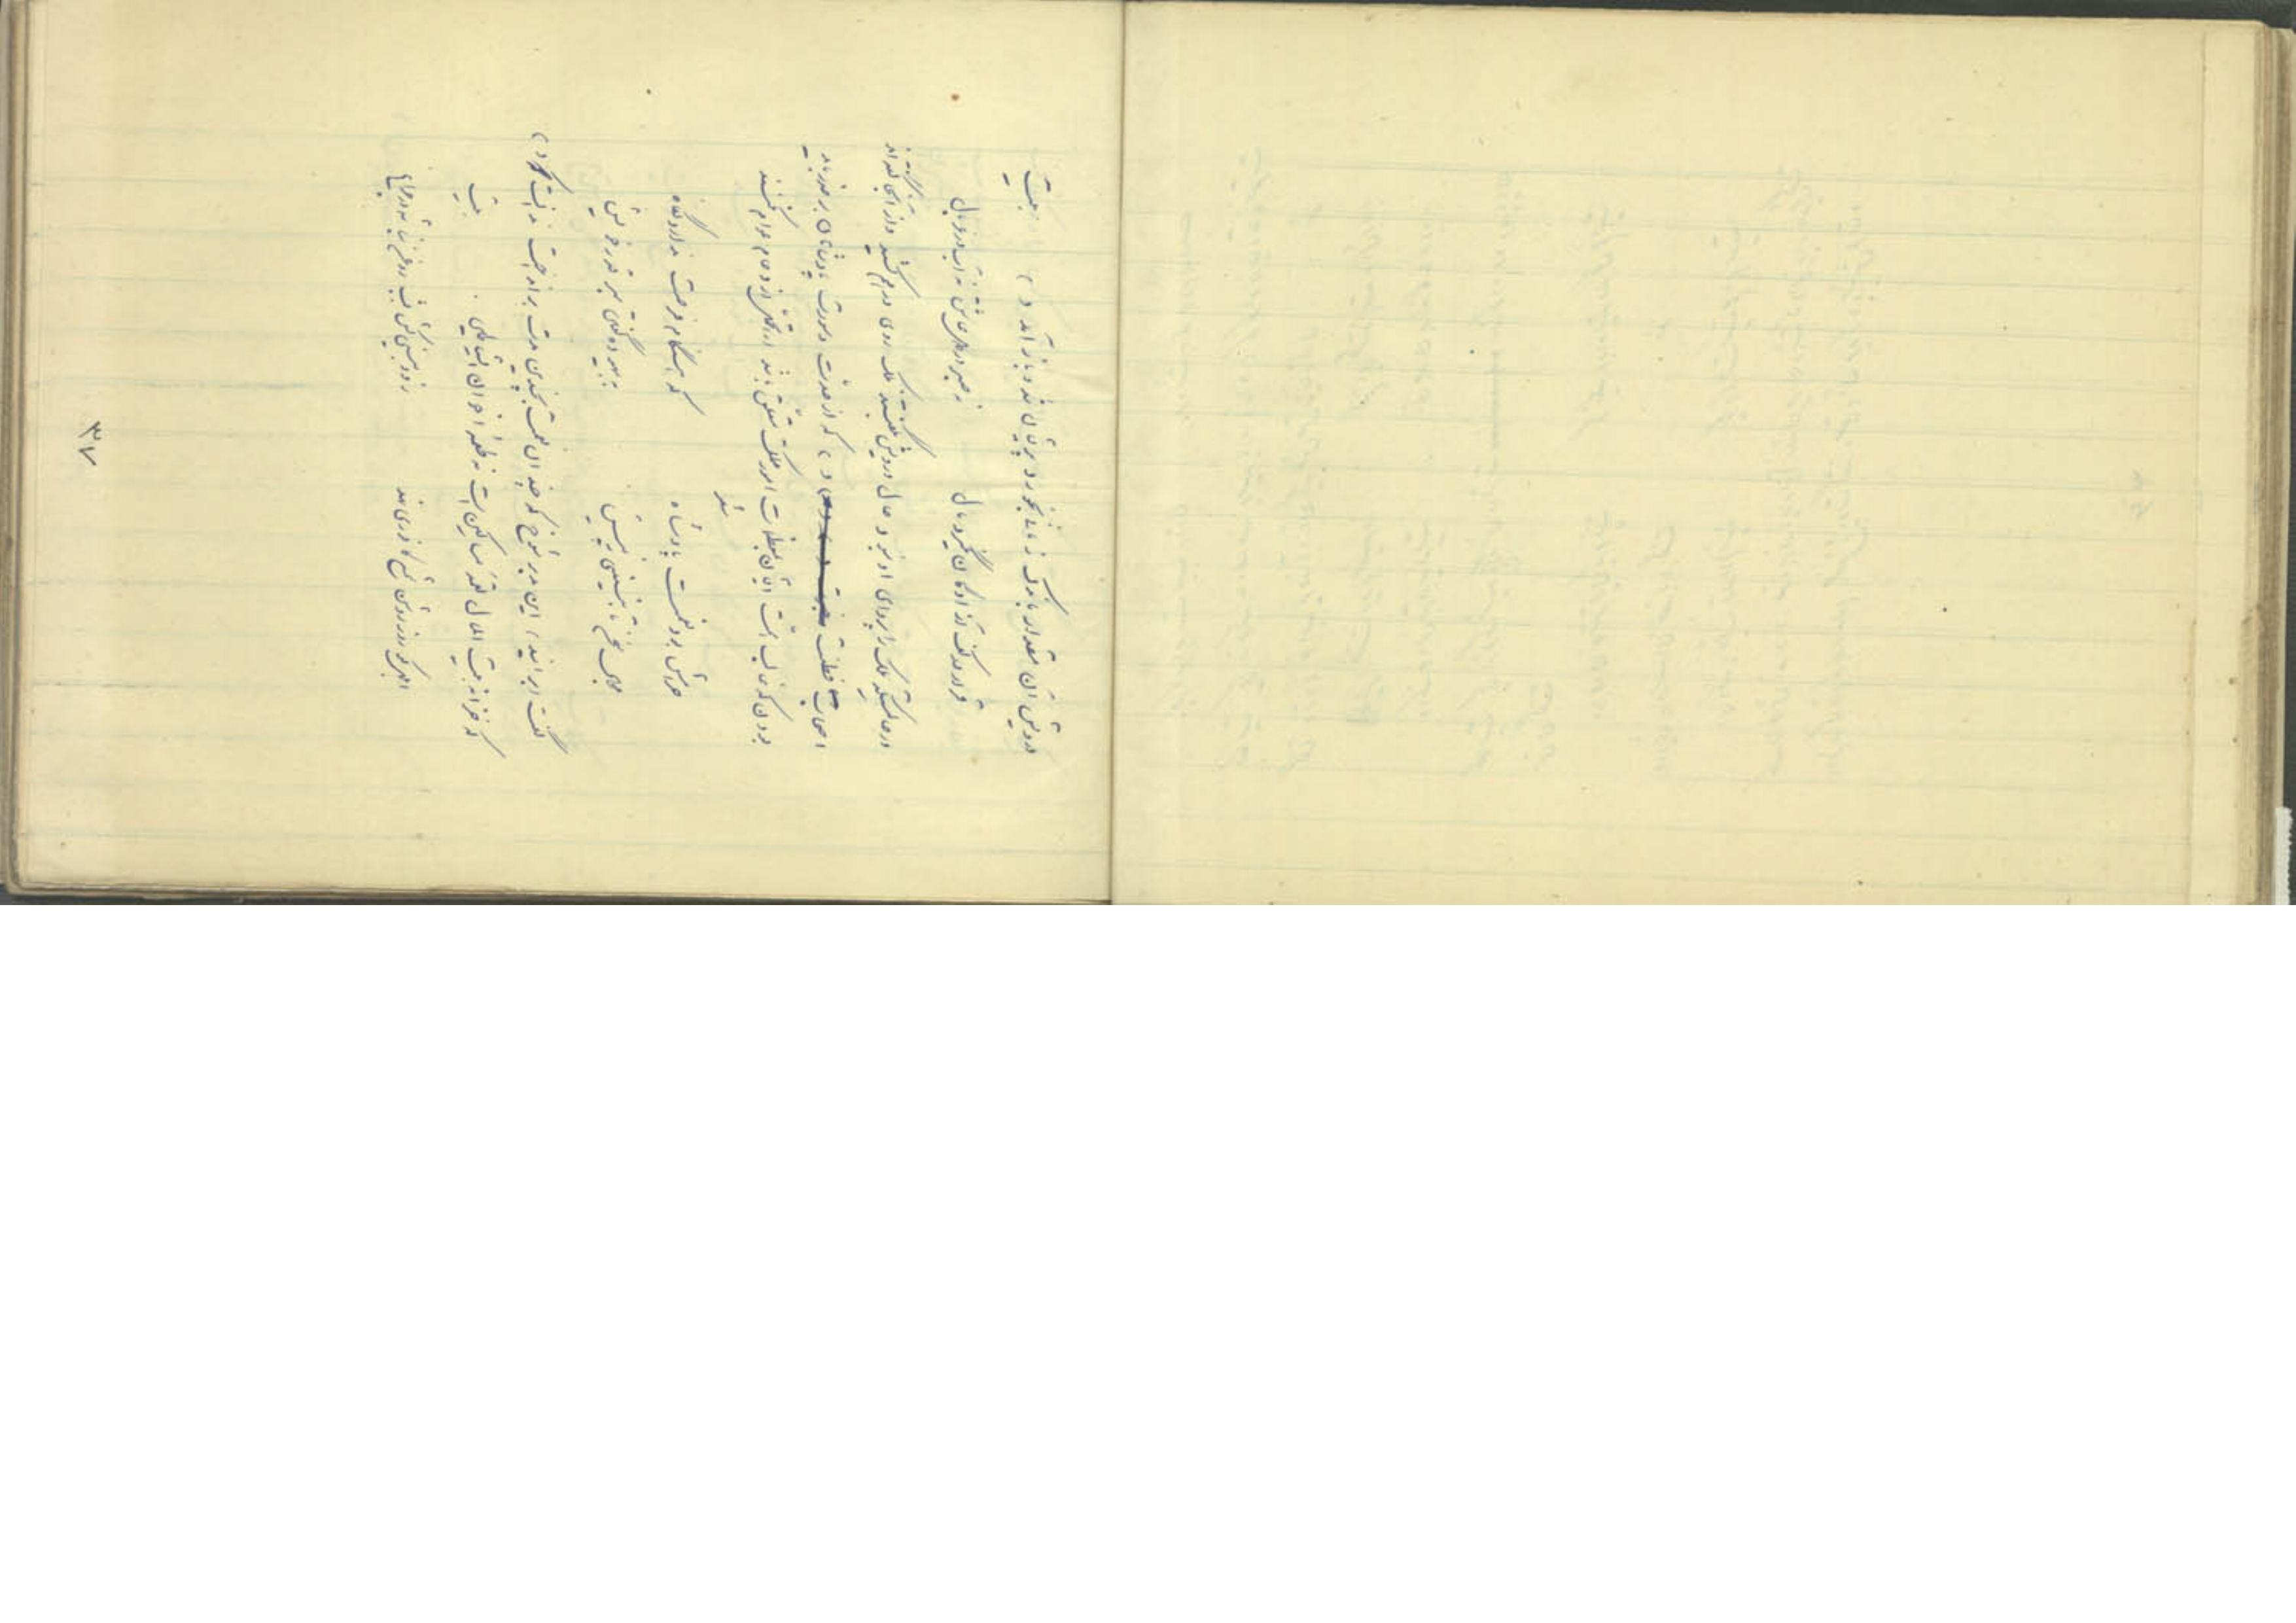 درویش آن مقدار بازرک زمانی بخورد و پریشان شد و باز آمد و بیت
قرار در کف آزادگان نگیرد مال    نه صبر در دل عاشق نه آب در غربال
در حالتیکه ملک را پروای او نبود حال درویش بگفتند ملک روی درهم کشید و از اینجا گفته‌اند
اصحاب فطنت و که از حدت و سورت پادشاهان بر حذر باید
بودن که غالب همت ایشان بمعظمات امور مملکت متعلق باشد و تحمل ازدحام عوام نکنند
شعر
حرامش بود نعمت پادشاه    که هنگام فرصت ندارد نگاه
مجال سخن تا نبینی ز پیش    به بیهوده گفتن مبر قدر خویش
گفت برانید این مبذر شوخ که چندان نعمت بچندین مدت برانداخت ندانست
که خزانه بیت المال لقمه مساکین است نه طعمه اخوان الشیاطین . بیت
ابلهی کو روز روشن شمع کافوری نهد    زود بینی کش بشب روغن نباشد در چراغ
٣٧